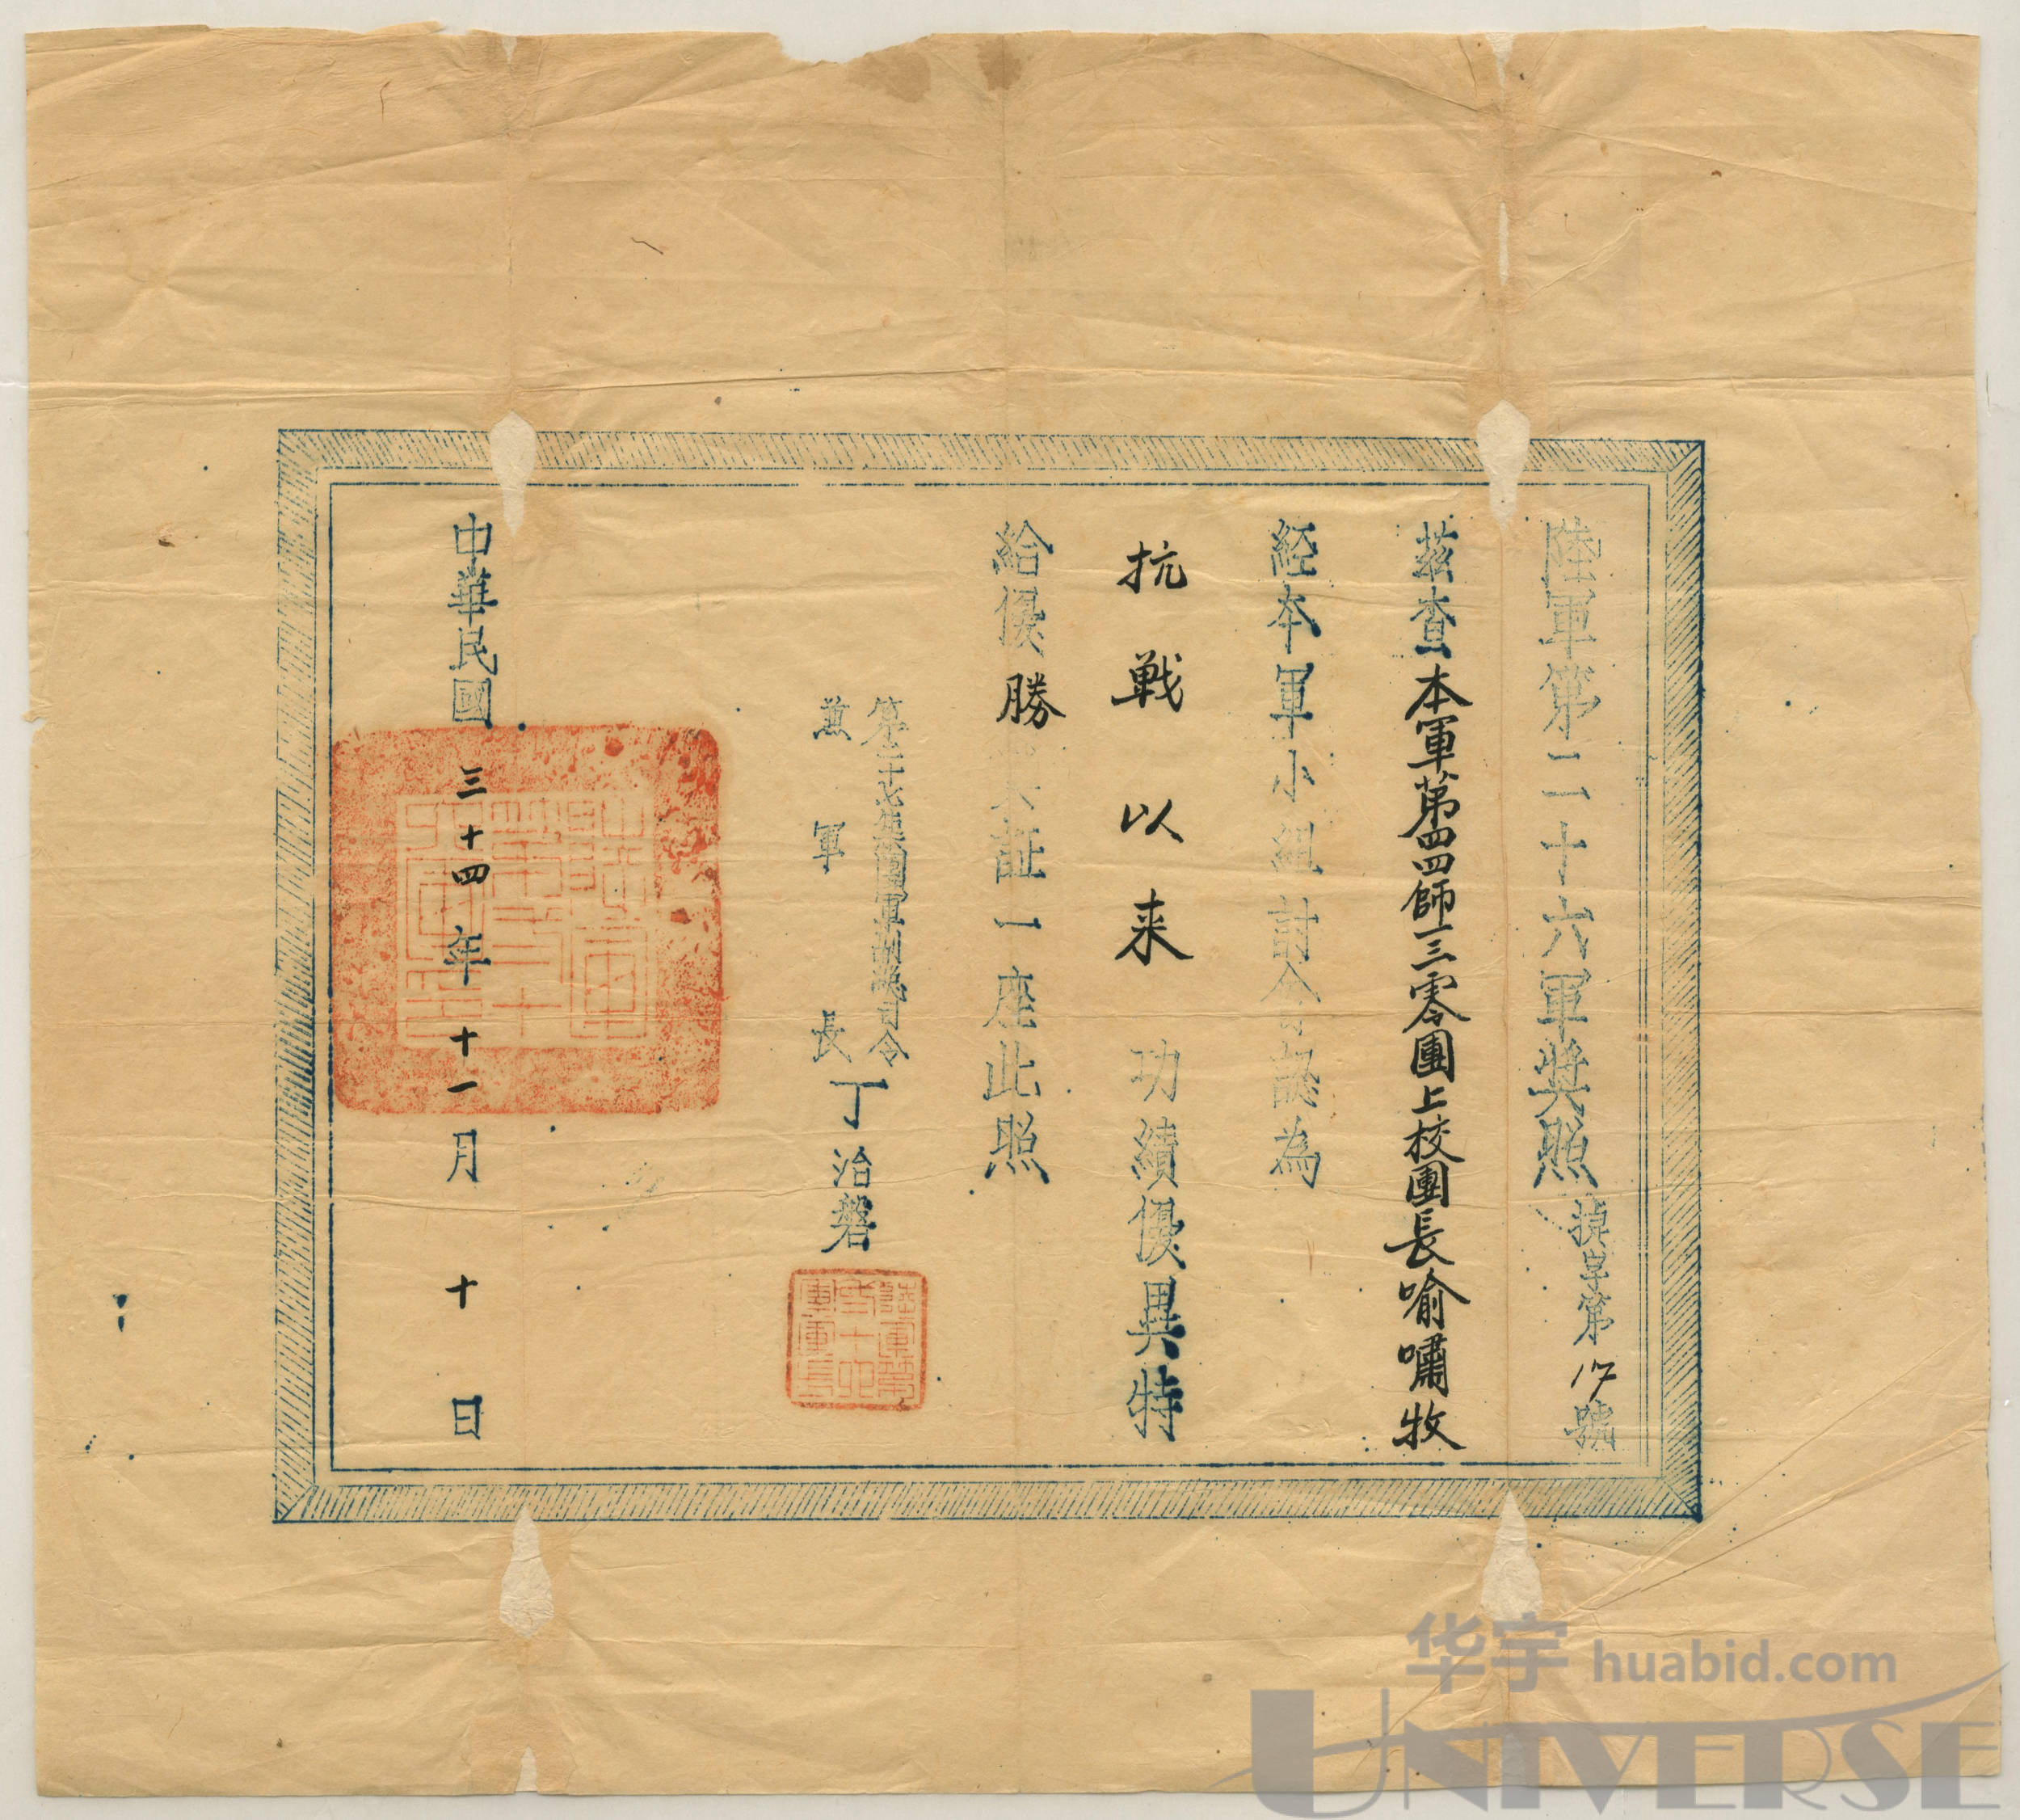 陸軍第二十六軍獎照
字第17號
茲查本軍第四四師一三零團上校團長喻嘯牧
経本軍小組討論認為
抗戰以来功績優異特
給優勝証一座此照
第二十七集團軍副總司令
兼軍長丁治磐
陸軍第二十六軍軍長
中華民國三十四年十一月十日
华宇 huabid.com
UNIVERSE